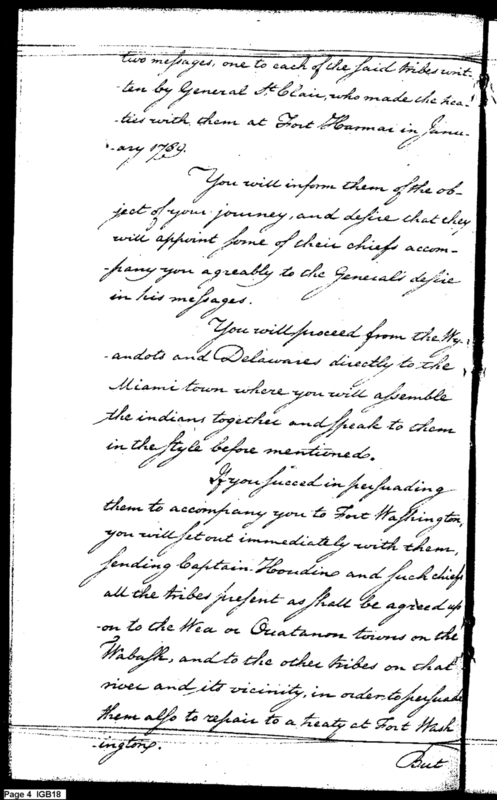 two messages, one to each of the said tribes writ-
-ten by General St. Clair, who made the trea-
-ties with them at Fort Harmar in Janu-
-ary 1789.
You will inform them of the ob-
ject of your journey, and desire that they
will appoint some of their chiefs accom-
-pany you agreably to the General's desire
in his messages.
You will proceed from the Wy-
-andots and Delawares directly to the
Miami town where you will assemble
the indians together and speak to them
in the style before mentioned.
If you succeed in persuading
them to accompany you to Fort Washington,
you will set out immediately with them,
sending Captain Houdin and such chiefs
all the tribes present as shall be agreed up
-on to the Wea or Ouatanon towns on the
Wabash, and to the other tribes on that
river and its vicinity, in order to persuade
them also to repair to a treaty at Fort Wash
-ington.
But
Page 4 IGB18